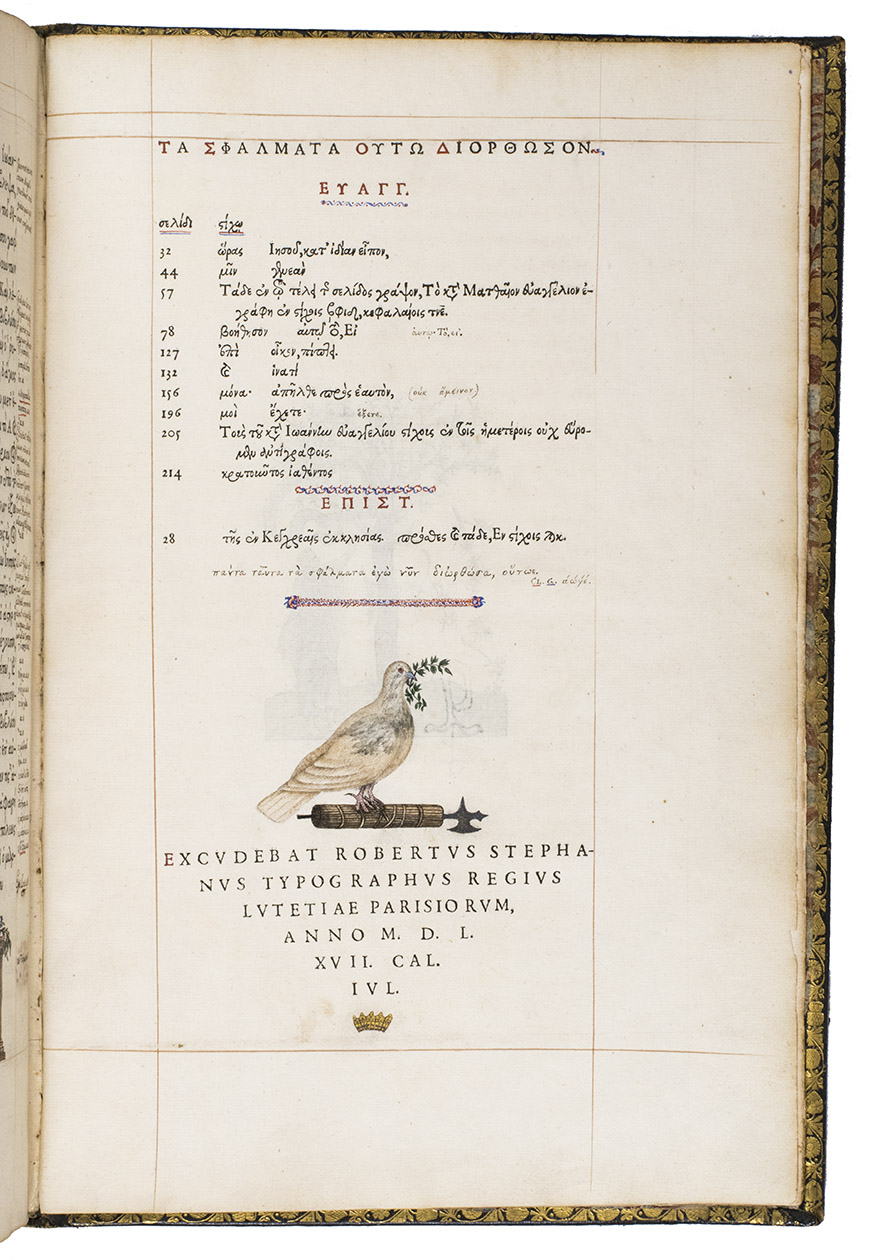 ΤΑ ΣΦΑΛΜΑΤΑ ΟΥΤΩ ΔΙΟΡΘΩΣΟΝ.
ΕΥΑΓΓ.
σελίδι στίχῳ
32 ὥρας Ιησοῦ, κατ' ἰδίαν εἶπον,
44 μῖν γενεὰν
57 Τάδε ἐν τῷ τέλει τῆς σελίδος γράψον, Τὸ κατὰ Ματθαῖον εὐαγγέλιον ἐ-
γράφη ἐν στίχοις κεφαλαίοις τνε.
78 βοήθησον αὐτῷ ὅ, Εἰ
127 ἐπὶ οἶκον, πίπτει.
132 ἱνατί
156 μόνα· ἀπῆλθε πρὸς ἑαυτὸν, (οὐκ ἄμεινον)
196 μοὶ ἔχετε·
205 Τοὺς τοῦ κατὰ Ιωάννην εὐαγγελίου στίχους ἐν τοῖς ἡμετέροις οὐχ εὕρο-
μεν ἀντιγράφοις.
214 κρατοιῶτος ἰαθέντος
ΕΠΙΣΤ.
28 τῆς ἐν Κεγχρεαῖς ἐκκλησίας. πρόσθες καὶ τάδε, Εν στίχοις
πάντα ταῦτα τὰ σφάλματα ἐγὼ νῦν διωρθωσα, οὕτως.
EXCVDEBAT ROBERTVS STEPHA-
NVS TYPOGRAPHVS REGIVS
LVTETIAE PARISIORVM,
ANNO M. D. L.
XVII. CAL.
IVL.